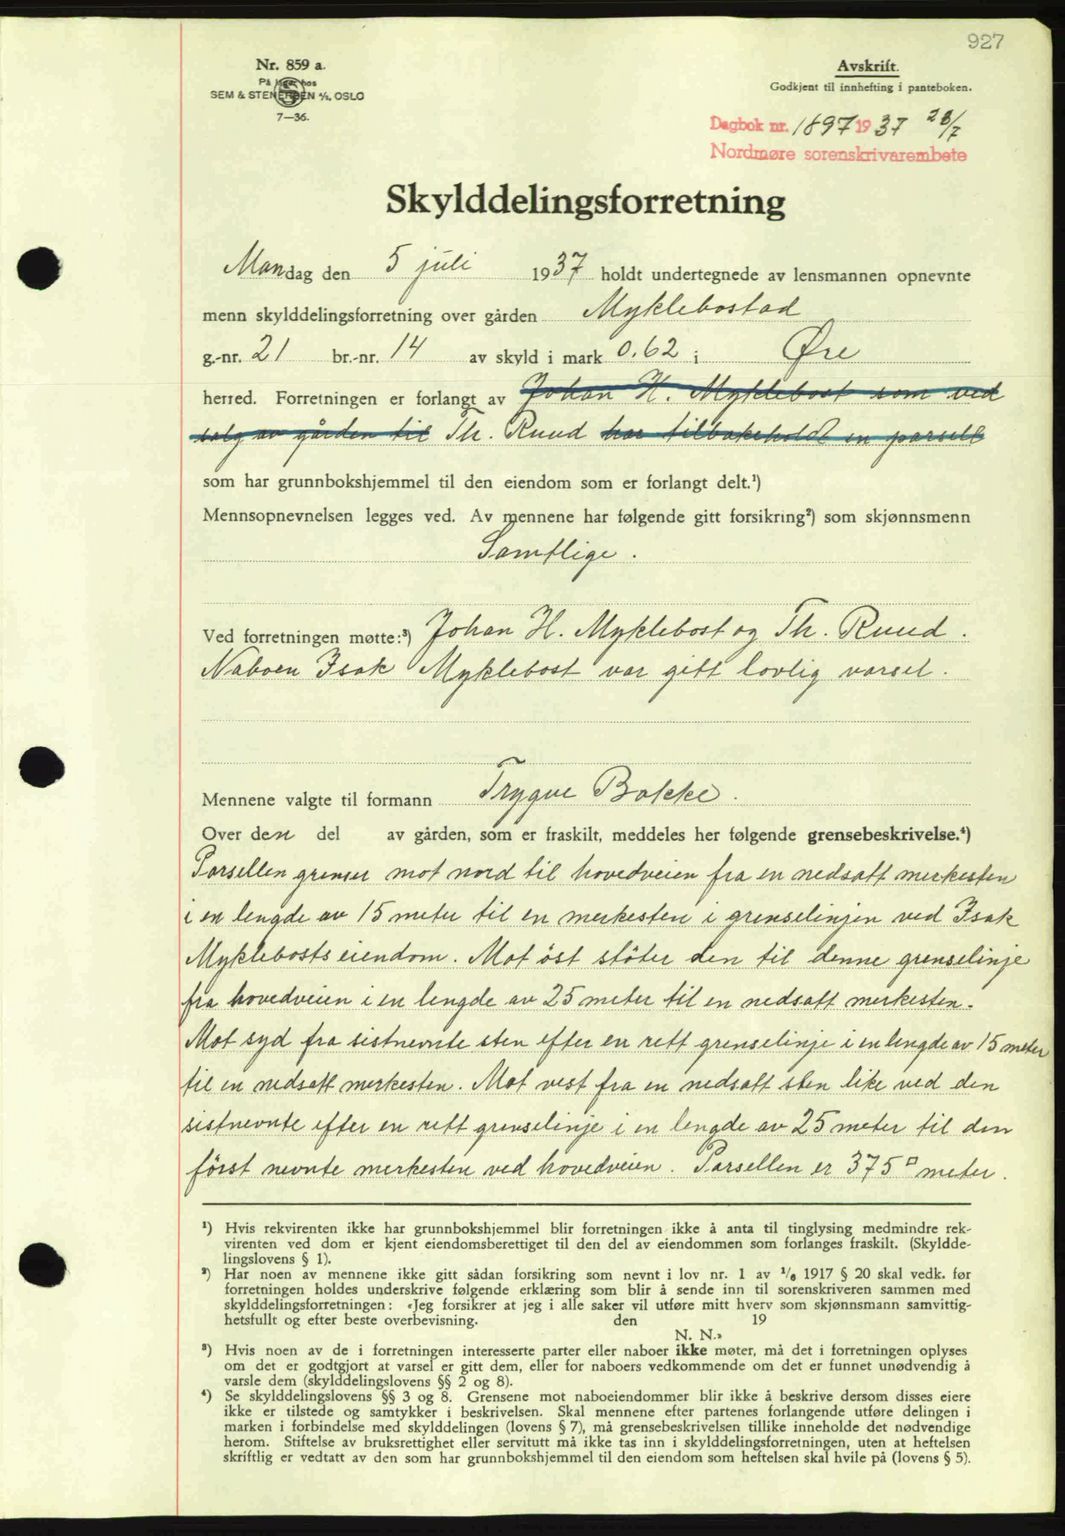 927
Nr. 859 a.
På lager hos
SEM & STENERSEN A/S, OSLO
7—36.
Avskrift.
Godkjent til innhefting i panteboken.
Dagbok nr. 1897 1937 28/7
Nordmøre sorenskrivarembete
Skylddelingsforretning
Mandag den 5 juli 1937 holdt undertegnede av lensmannen opnevnte
menn skylddelingsforretning over gården Myklebostad
g.-nr. 21 br.-nr. 14 av skyld i mark 0.62 i Øre
herred. Forretningen er forlangt av Johan H. Myklebost som ved
salg av gården til Th. Ruud har tilbakeholdt en parsell
som har grunnbokshjemmel til den eiendom som er forlangt delt.¹)
Mennsopnevnelsen legges ved. Av mennene har følgende gitt forsikring²) som skjønnsmenn
Samtlige.
Ved forretningen møtte:³) Johan H. Myklebost og Th. Ruud.
Naboen Isak Myklebost var gitt lovlig varsel.
Mennene valgte til formann Trygve Bakke.
Over den del av gården, som er fraskilt, meddeles her følgende grensebeskrivelse.⁴)
Parsellen grenser mot nord til hovedveien fra en nedsatt merkesten
i en lengde av 15 meter til en merkesten i grenselinjen ved Isak
Myklebosts eiendom. Mot öst stöter den til denne grenselinje
fra hovedveien i en lengde av 25 meter til en nedsatt merkesten.
Mot syd fra sistnevnte sten efter en rett grenselinje i en lengde av 15 meter
til en nedsatt merkesten. Mot vest fra en nedsatt sten like ved den
sistnevnte efter en rett grenselinje i en lengde av 25 meter til den
först nevnte merkesten ved hovedveien. Parsellen er 375 □ meter.
¹) Hvis rekvirenten ikke har grunnbokshjemmel blir forretningen ikke å anta til tinglysing medmindre rek-
virenten ved dom er kjent eiendomsberettiget til den del av eiendommen som forlanges fraskilt. (Skyldde-
lingslovens § 1).
²) Har noen av mennene ikke gitt sådan forsikring som nevnt i lov nr. 1 av 1/6 1917 § 20 skal vedk. før
forretningen holdes underskrive følgende erklæring som blir å sende inn til sorenskriveren sammen med
skylddelingsforretningen: «Jeg forsikrer at jeg i alle saker vil utføre mitt hverv som skjønnsmann samvittig-
hetsfullt og efter beste overbevisning. den 19
N. N.»
³) Hvis noen av de i forretningen interesserte parter eller naboer ikke møter, må det i forretningen oplyses
om det er godtgjort at varsel er gitt dem, eller for naboers vedkommende om det er funnet unødvendig å
varsle dem (skylddelingslovens §§ 2 og 8).
⁴) Se skylddelingslovens §§ 3 og 8. Grensene mot naboeiendommer blir ikke å beskrive dersom disses eiere
ikke er tilstede og samtykker i beskrivelsen. Skal mennene efter partenes forlangende utføre delingen i
marken i forbindelse med skylddelingen (lovens § 7), må grensebeskrivelsen tillike inneholde det nødvendige
herom. Stiftelse av bruksrettighet eller servitutt må ikke tas inn i skylddelingsforretningen, uten at heftelsen
skriftlig er vedtatt av den som har grunnbokshjemmel til den eiendom som heftelsen skal hvile på (lovens § 5).